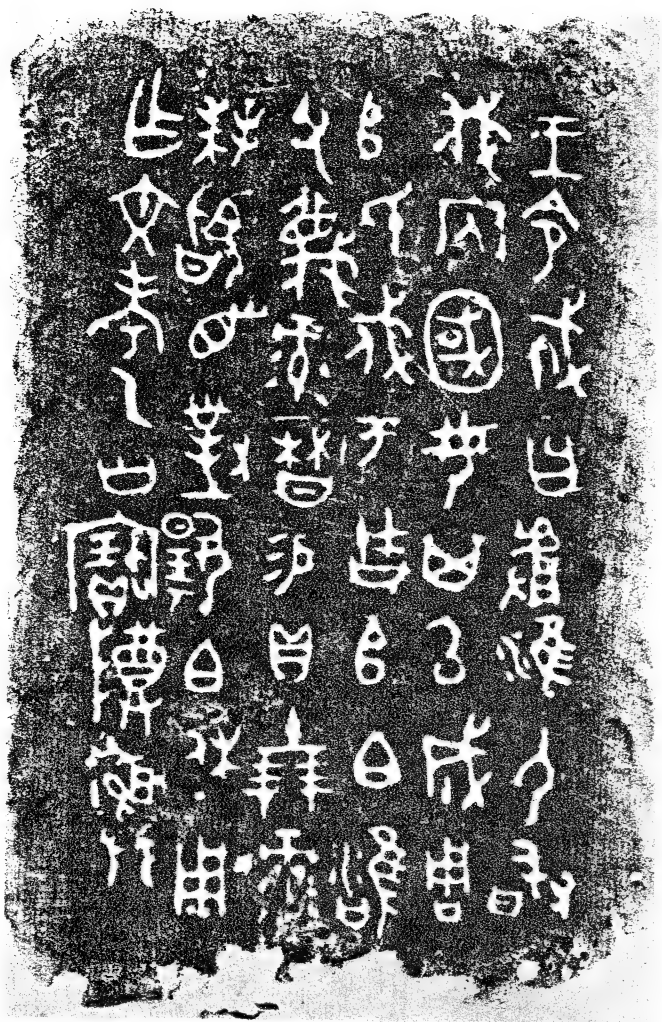 王令㦰曰𠭯淮尸敢
伐内國女其㠯成周
𠂤氏戍于𠂤白雍
父蔑彔曆易貝十朋彔
拜𩒨首對揚白休用
乍文考乙公寶尊彝